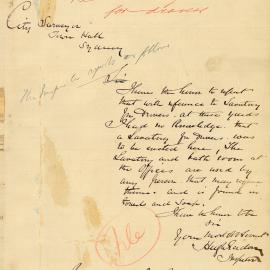 for drivers
City Surveyor
Town Hall
Sydney
The Inspector reports as follows
Sir
I have the honor to report
that with reference to Lavatory
for Drivers at these yards
I had no knowledge that
a Lavatory for Drivers was
to be erected here, The
Lavatory and bath room at
the Offices are used by
any person that may require
them and is found in
Towels and Soap.
I have the honor to be
Sir
Your most obt Servant
Hugh
Inspector
File